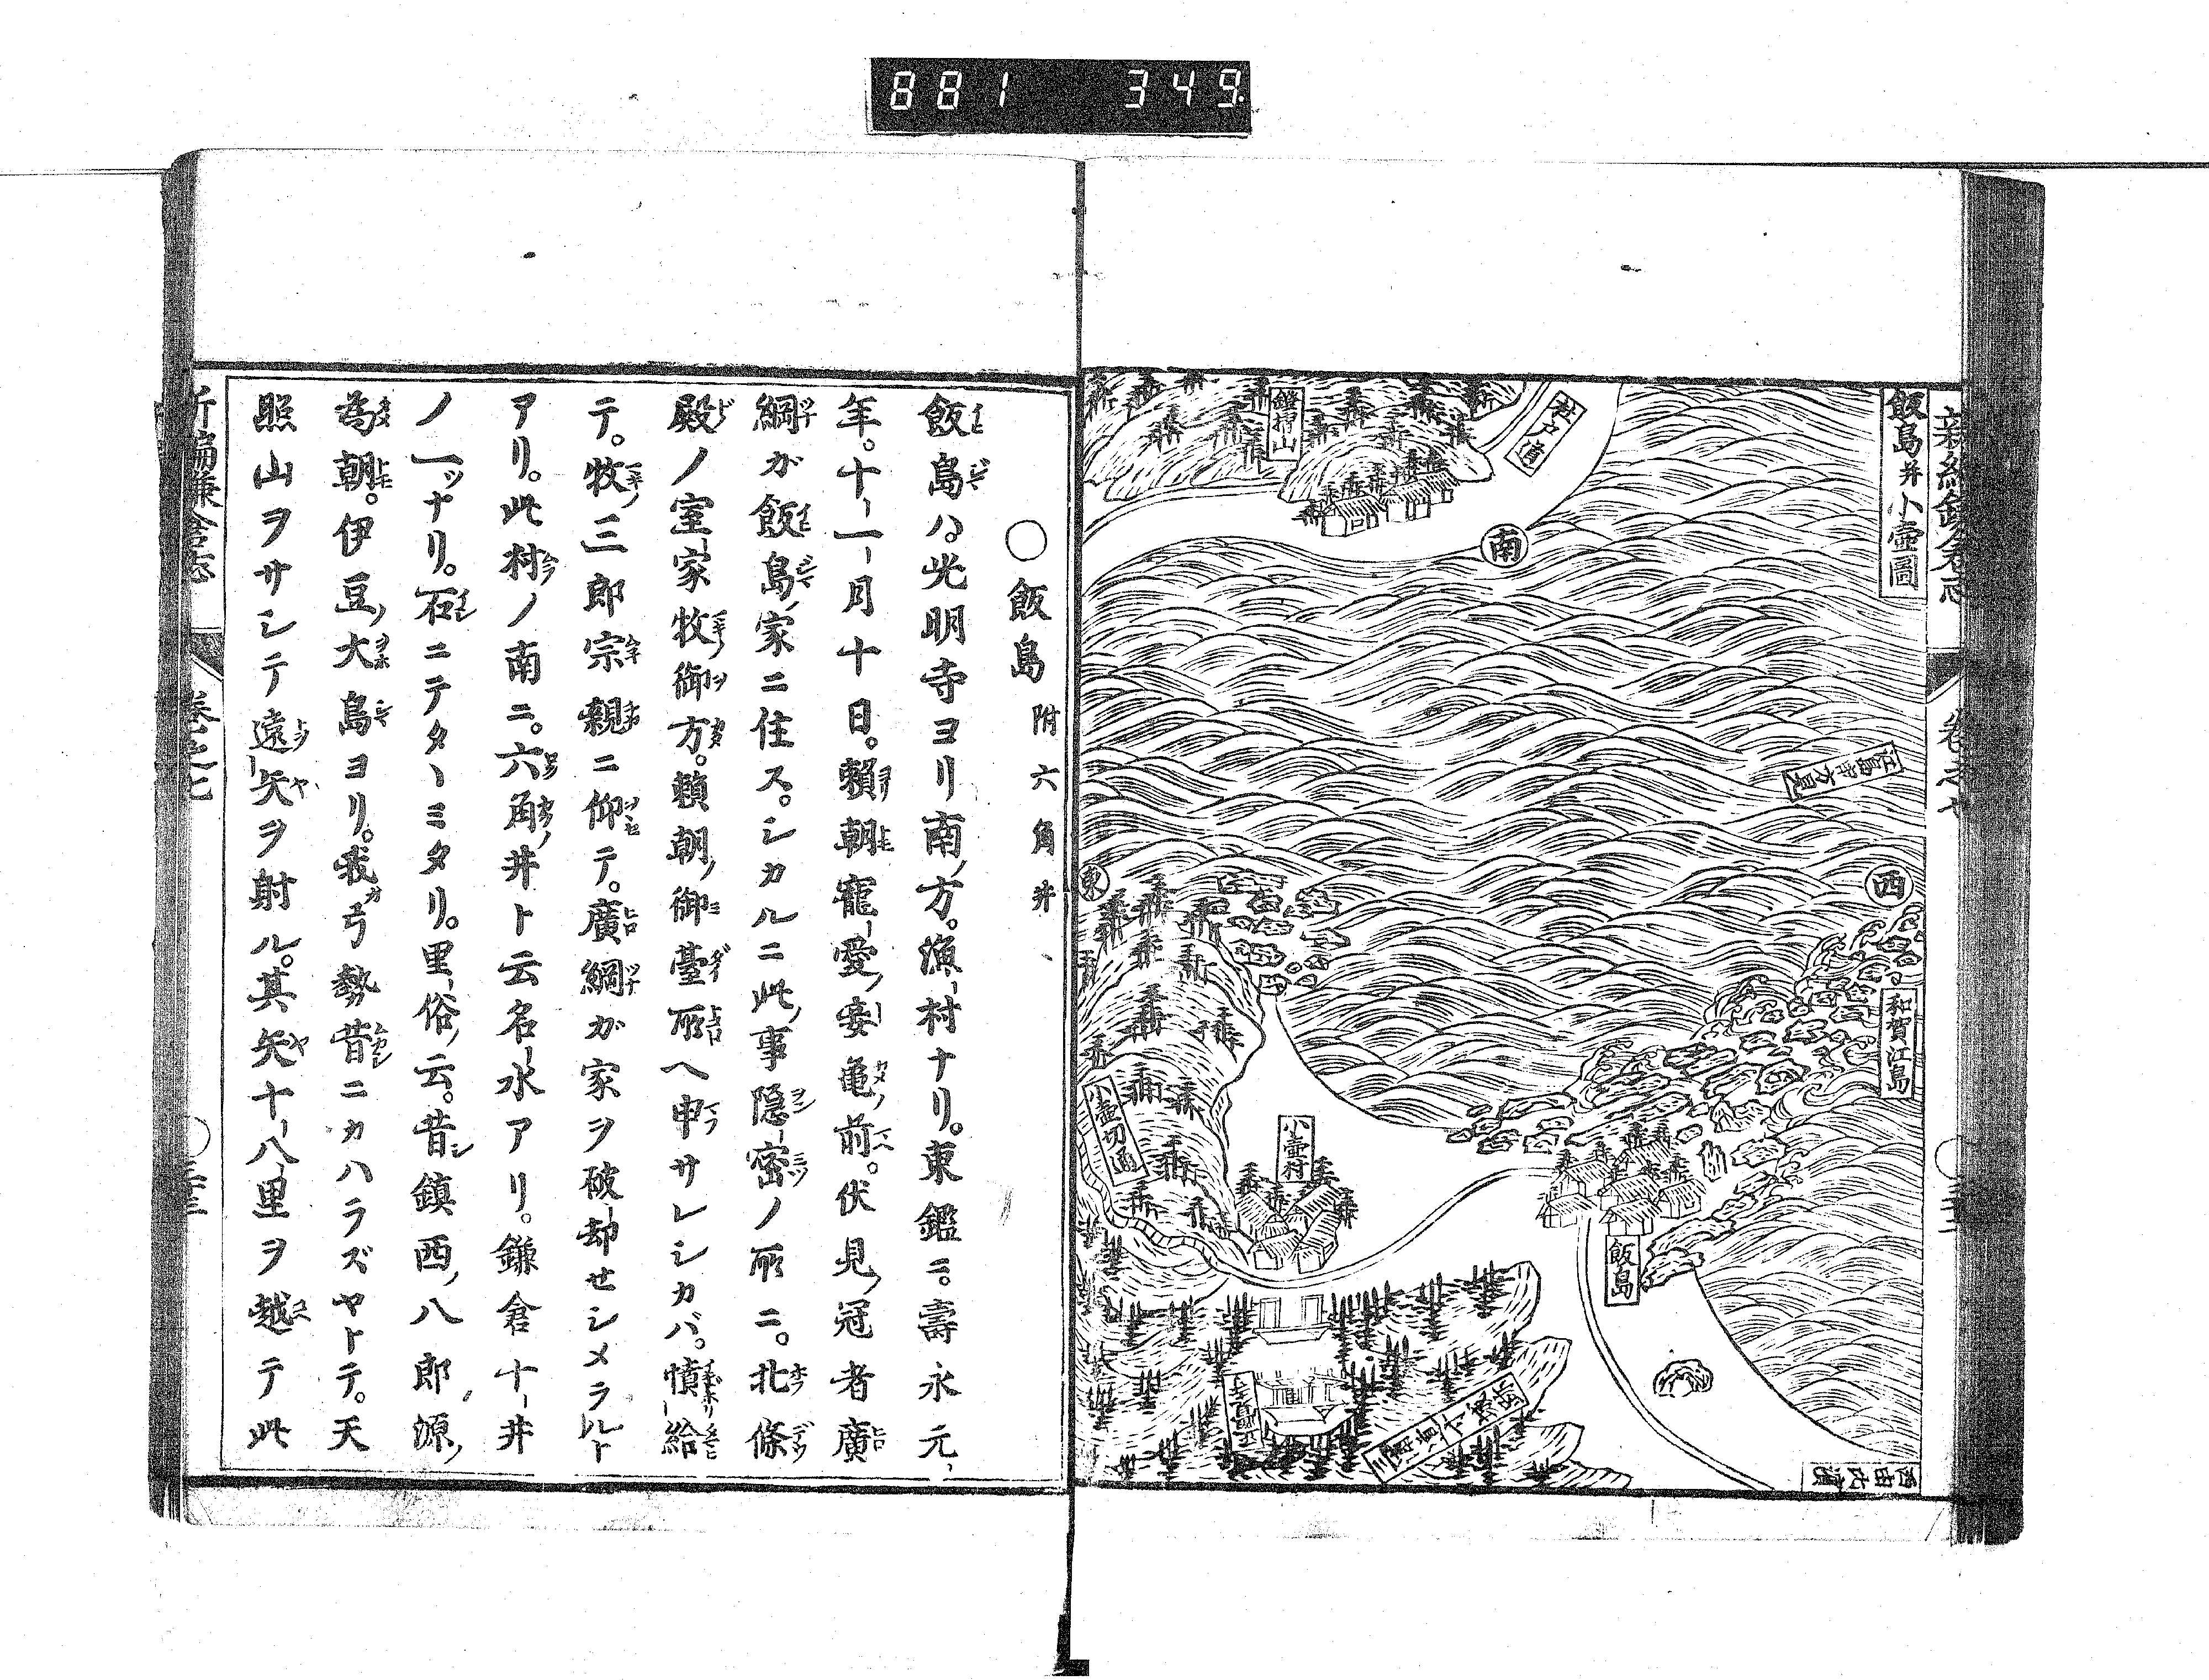 881 349
新編鎌倉志
卷之七
飯島并小壺圖
鐙摺山
杜戸道
南
西
東
和賀江島
小壺切通
小壺村
飯島
○飯島附六角井
飯島ハ。光明寺ヨリ南ノ方。漁村ナリ。東鑑ニ。壽永元
年。十一月十日。賴朝寵愛ノ妾亀前。伏見ノ冠者廣
綱ガ飯島ノ家ニ住ス。シカルニ此ノ事隠密ノ所ニ。北條
殿ノ室家牧ノ御方。賴朝ノ御臺所ヘ申サレシカバ。憤給
テ。牧ノ三郎宗親ニ仰テ。廣綱ガ家ヲ破却せシメラルト
アリ。此村ノ南ニ。六角ノ井ト云名水アリ。鎌倉十井
ノ一ッナリ。石ニテタヽミタリ。里俗ノ云。昔シ鎮西ノ八郎源ノ
為朝。伊豆ノ大島ヨリ。我ガ弓勢昔ニカハラズヤトテ。天
照山ヲサシテ遠矢ヲ射ル。其矢十八里ヲ越テ此
新編鎌倉志
卷之七